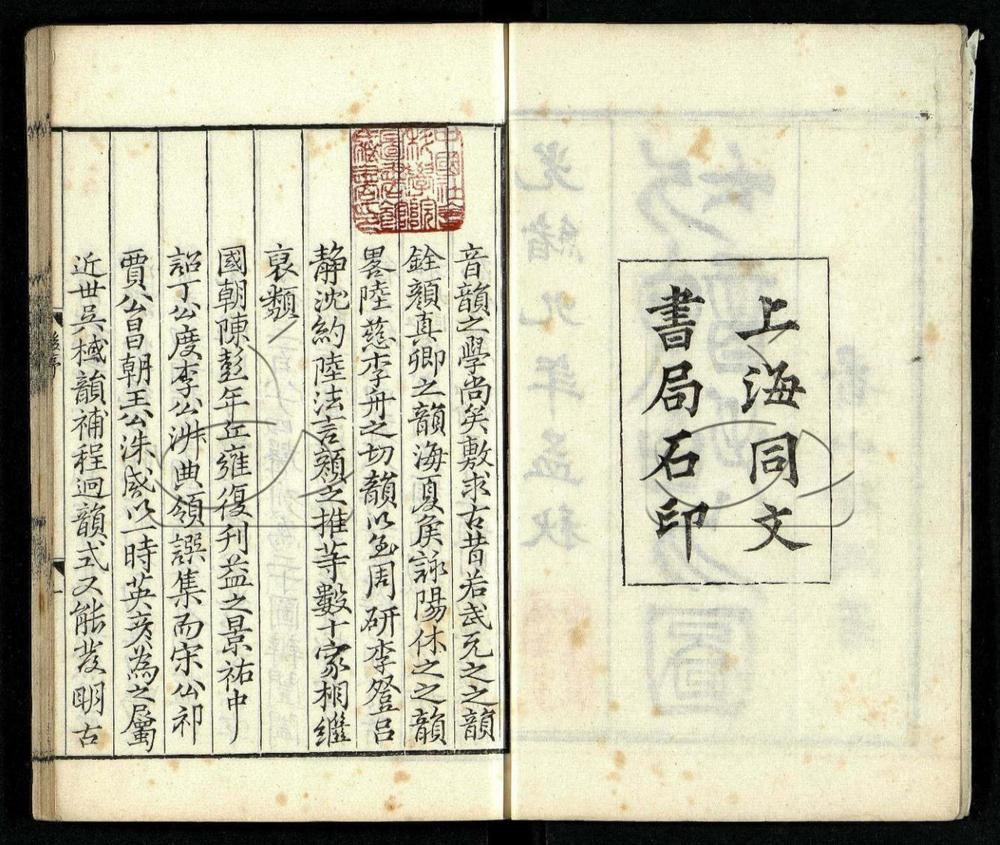 上海同文
書局石印
音韻之學尚矣敷求古昔若武元之之韻
銓顔真卿之韻海夏矦詠陽休之之韻
畧陸慈李舟之切韻以至周研李登吕
静沈約陸法言顔之推等數十家相繼
裒類
國朝陳彭年丘雍復刋益之景祐中
詔丁公度李公淑典領譔集而宋公祁
賈公昌朝王公洙咸以一時英彦為之屬
近世吴棫韻補程迥韻式又能發明古
光緒九年孟秋